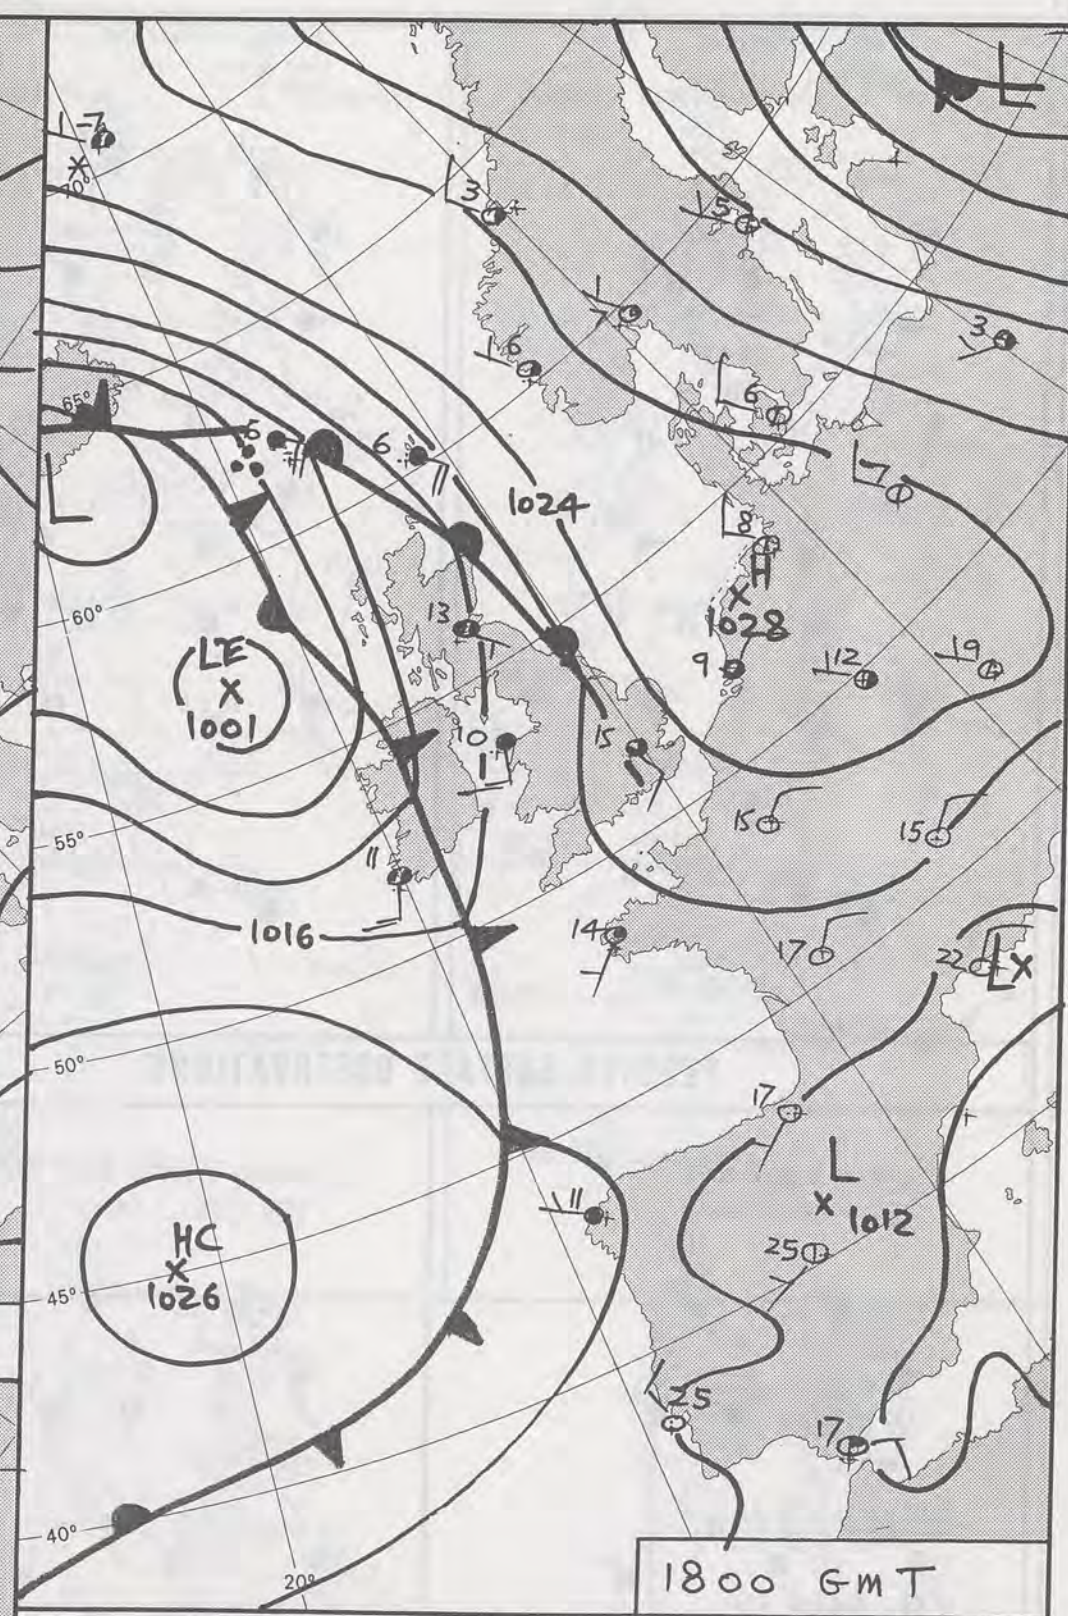 L
1 -7
70°
3
5
1
7
3
1 6
6
65°
5
6
7
L
1024
8
H
1028
60°
13
LE
1001
9
12
19
10
15
15
15
55°
11
1016
14
17
22
L
50°
17
L
1012
11
25
HC
1026
45°
25
17
40°
20°
1800 GMT